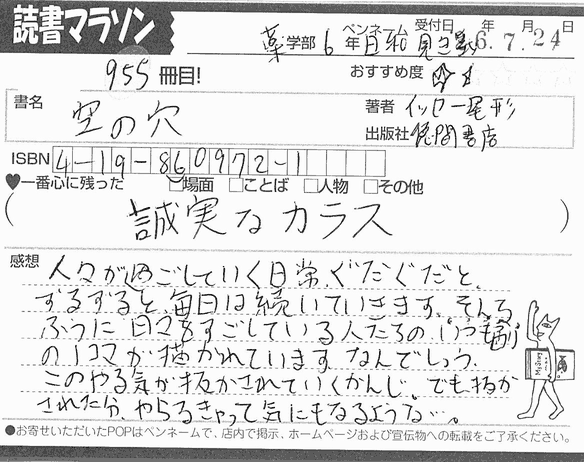 読書マラソン
薬学部 6年 ペンネーム 日和見 受付日 6年7月24日
955冊目!
おすすめ度 ☆☆
書名 空の穴
著者 イッセー尾形
出版社 徳間書店
ISBN 4-19-860972-1
♥一番心に残った □場面 □ことば □人物 □その他
(誠実なカラス)
感想
人々が過ごしていく日常。ぐだぐだと、
ずるずると、毎日は続いていきます。そんな
ふうに日々をすごしている人たちの、
の1コマが描かれています。なんでしょう、
このやる気が抜かされていくかんじ。でも抜か
された分、やらなきゃって気にもなるような…。
●お寄せいただいたPOPはペンネームで、店内で掲示、ホームページおよび宣伝物への転載をご了承ください。